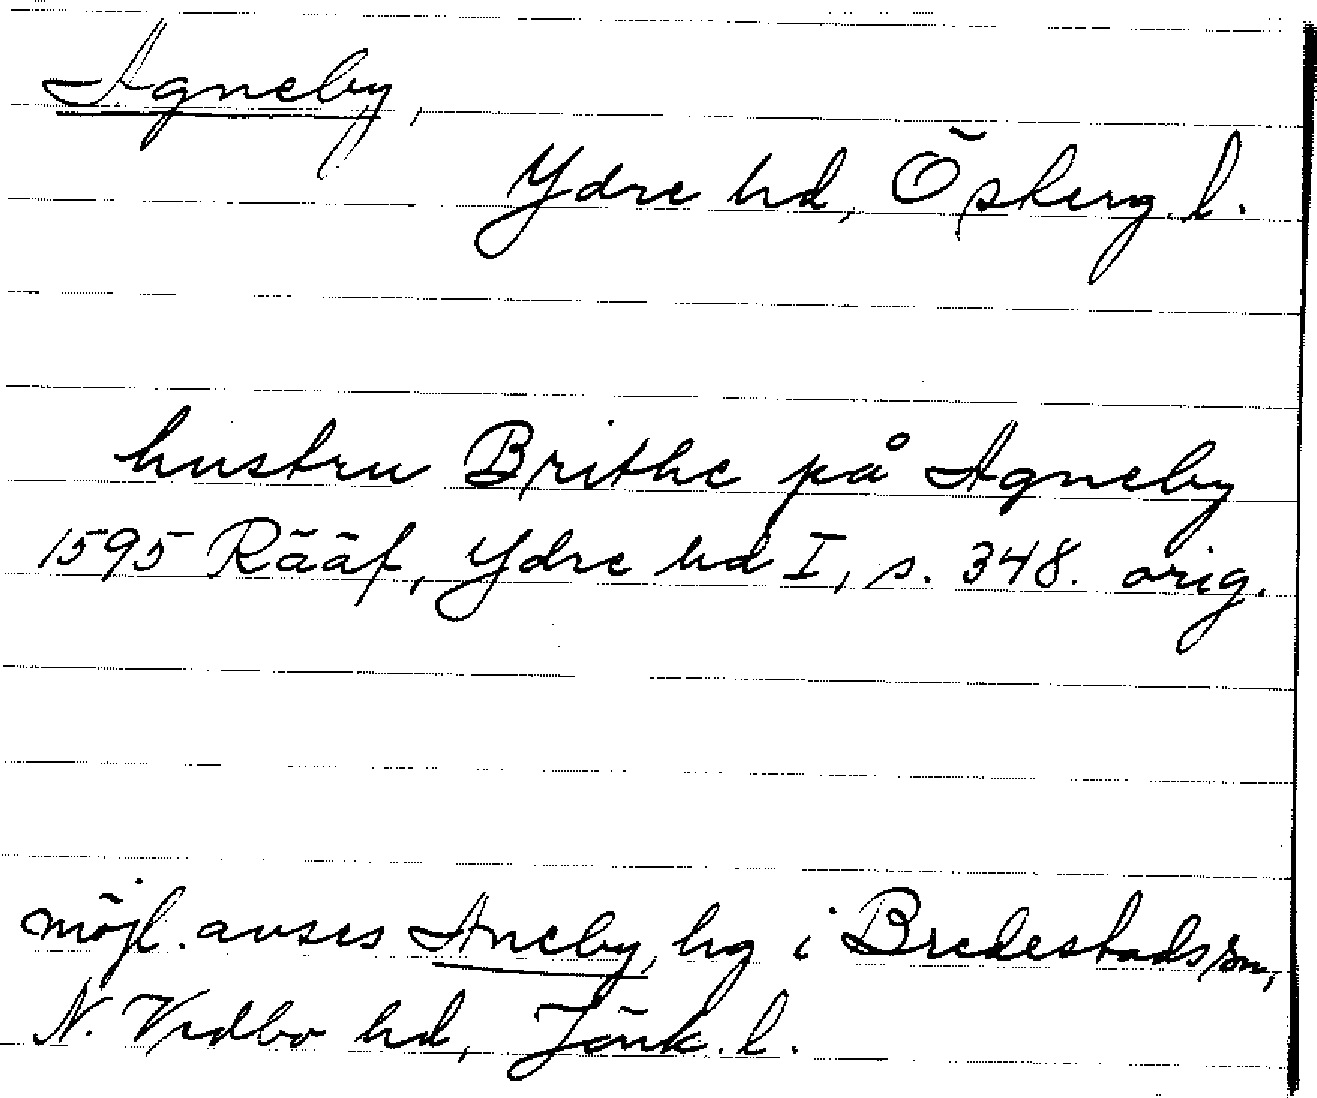 Agneby,
Ydre hd, Österg. l.
hustru Brithe på Agneby
1595 Rääf, Ydre hd I, s. 348. orig.
möjl. avses Aneby, hg i Bredestads sn,
N. Vedbo hd, Jönk. l.